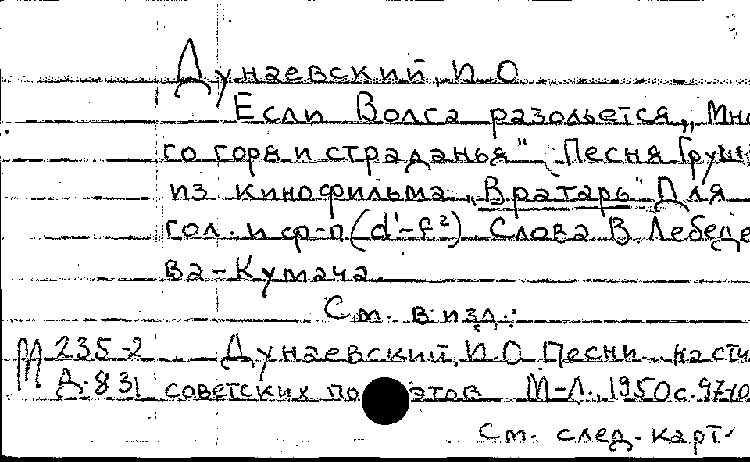 Дунаевский, И О
Если Волга разольется, „Мно
го горя и страданья" Песня Груни
из кинофильма „Вратарь" Для
гол. и ф-п (d'-f²) Слова В Лебеде
ва-Кумача.
См. в изд.:
М 235-2 Дунаевский, И О Песни на сти
Д-831 советских по этов М-Л., 1950 с.
См. след. карт.